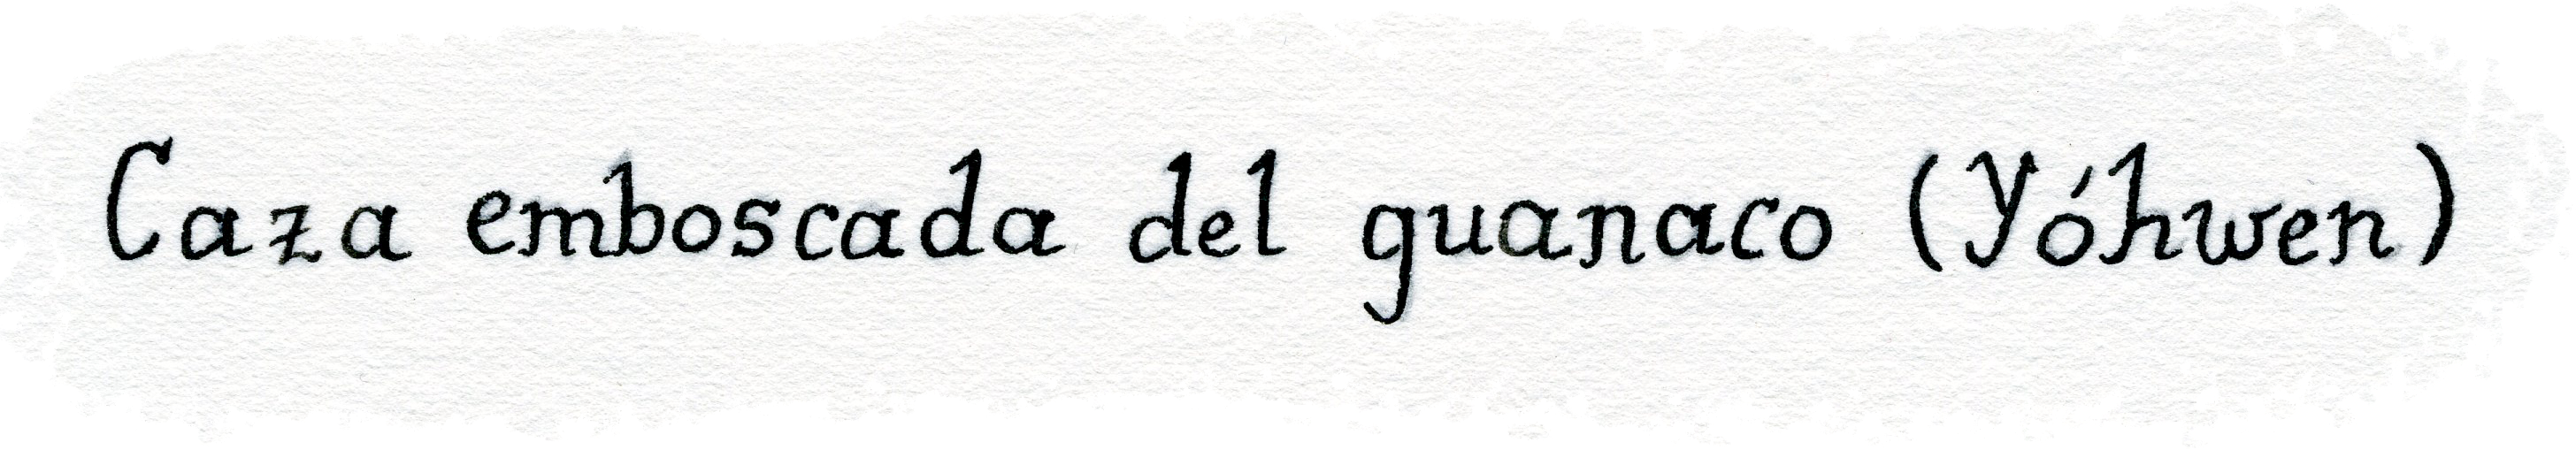 Caza emboscada del guanaco (Yóhwen)